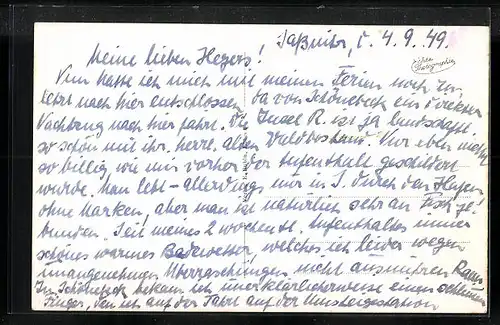 Saßnitz, d. 4.9.49.
Meine lieben Hegers!
Nun hatte ich mich mit meinen Ferien noch zu-
letzt nach hier entschlossen, da von Schönebeck ein direkter
Nachtzug nach hier fährt. Die Insel R. ist ja landschaftl.
so schön mit ihr. herrl. alten Waldbestand. Nur eben nicht
so billig, wie mir vorher der Aufenthalt geschildert
wurde. Man lebt – allerdings nur in S. durch den Hafen
ohne Marken, aber man ist natürlich sehr an Fisch ge-
bunden. Seit meines 2 wöchentl. Aufenthaltes immer
schönes warmes Badewetter, welches ich leider wegen
unangenehmer Überraschungen nicht ausnutzen kann.
In Schönebeck bekam ich unerklärlicherweise einen schlimmen
Finger, den ich auf der Fahrt auf der Umsteigestation